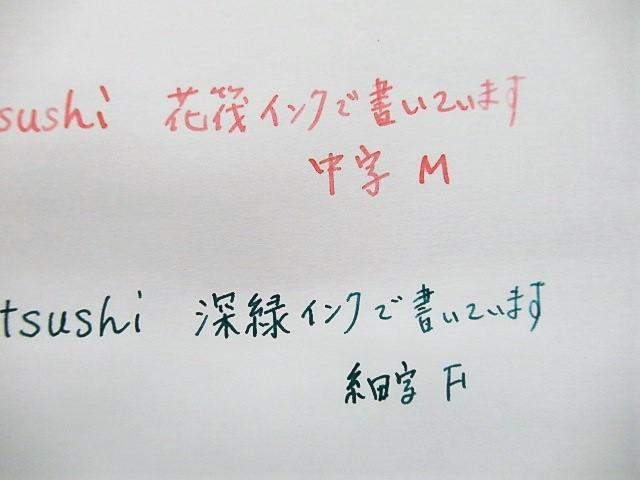 sushi 花筏インクで書いています
中字 M
tsushi 深緑インクで書いています
細字 F